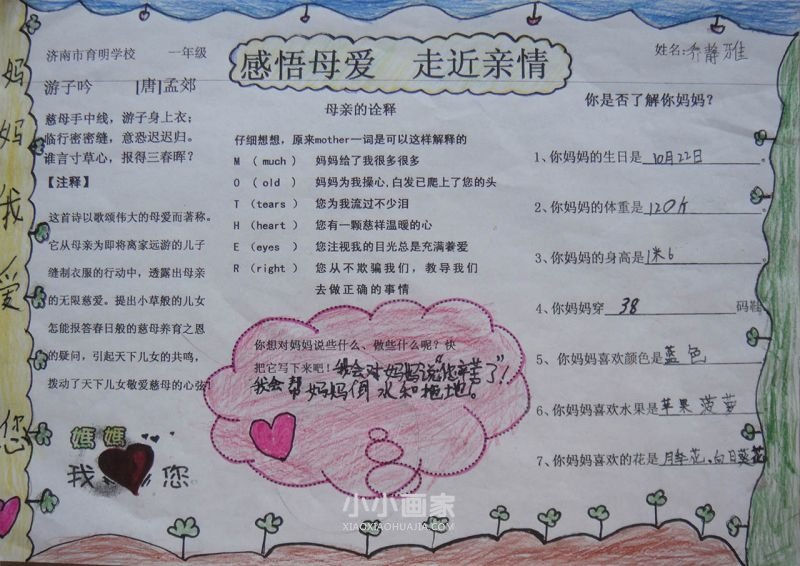 妈妈我爱您
济南市育明学校 一年级
姓名：乔静雅
感悟母爱 走近亲情
游子吟 [唐]孟郊
慈母手中线，游子身上衣；
临行密密缝，意恐迟迟归。
谁言寸草心，报得三春晖？
【注释】
这首诗以歌颂伟大的母爱而著称。
它从母亲为即将离家远游的儿子
缝制衣服的行动中，透露出母亲
的无限慈爱。提出小草般的儿女
怎能报答春日般的慈母养育之恩
的疑问，引起天下儿女的共鸣，
拨动了天下儿女敬爱慈母的心弦！
媽媽
我 您
母亲的诠释
仔细想想，原来mother一词是可以这样解释的
M （much） 妈妈给了我很多很多
O （old） 妈妈为我操心,白发已爬上了您的头
T （tears） 您为我流过不少泪
H （heart） 您有一颗慈祥温暖的心
E （eyes） 您注视我的目光总是充满着爱
R （right） 您从不欺骗我们，教导我们
去做正确的事情
你想对妈妈说些什么、做些什么呢？快
把它写下来吧！我会对妈妈说“您辛苦了”！
我会帮妈妈倒水和拖地。
你是否了解你妈妈？
1、你妈妈的生日是 10月22日
2、你妈妈的体重是 120斤
3、你妈妈的身高是 1米6
4、你妈妈穿 38 码鞋
5、你妈妈喜欢颜色是 蓝色
6、你妈妈喜欢水果是 苹果 菠萝
7、你妈妈喜欢的花是 月季花、向日葵花
小小画家
XIAOXIAOHUAJIA.COM